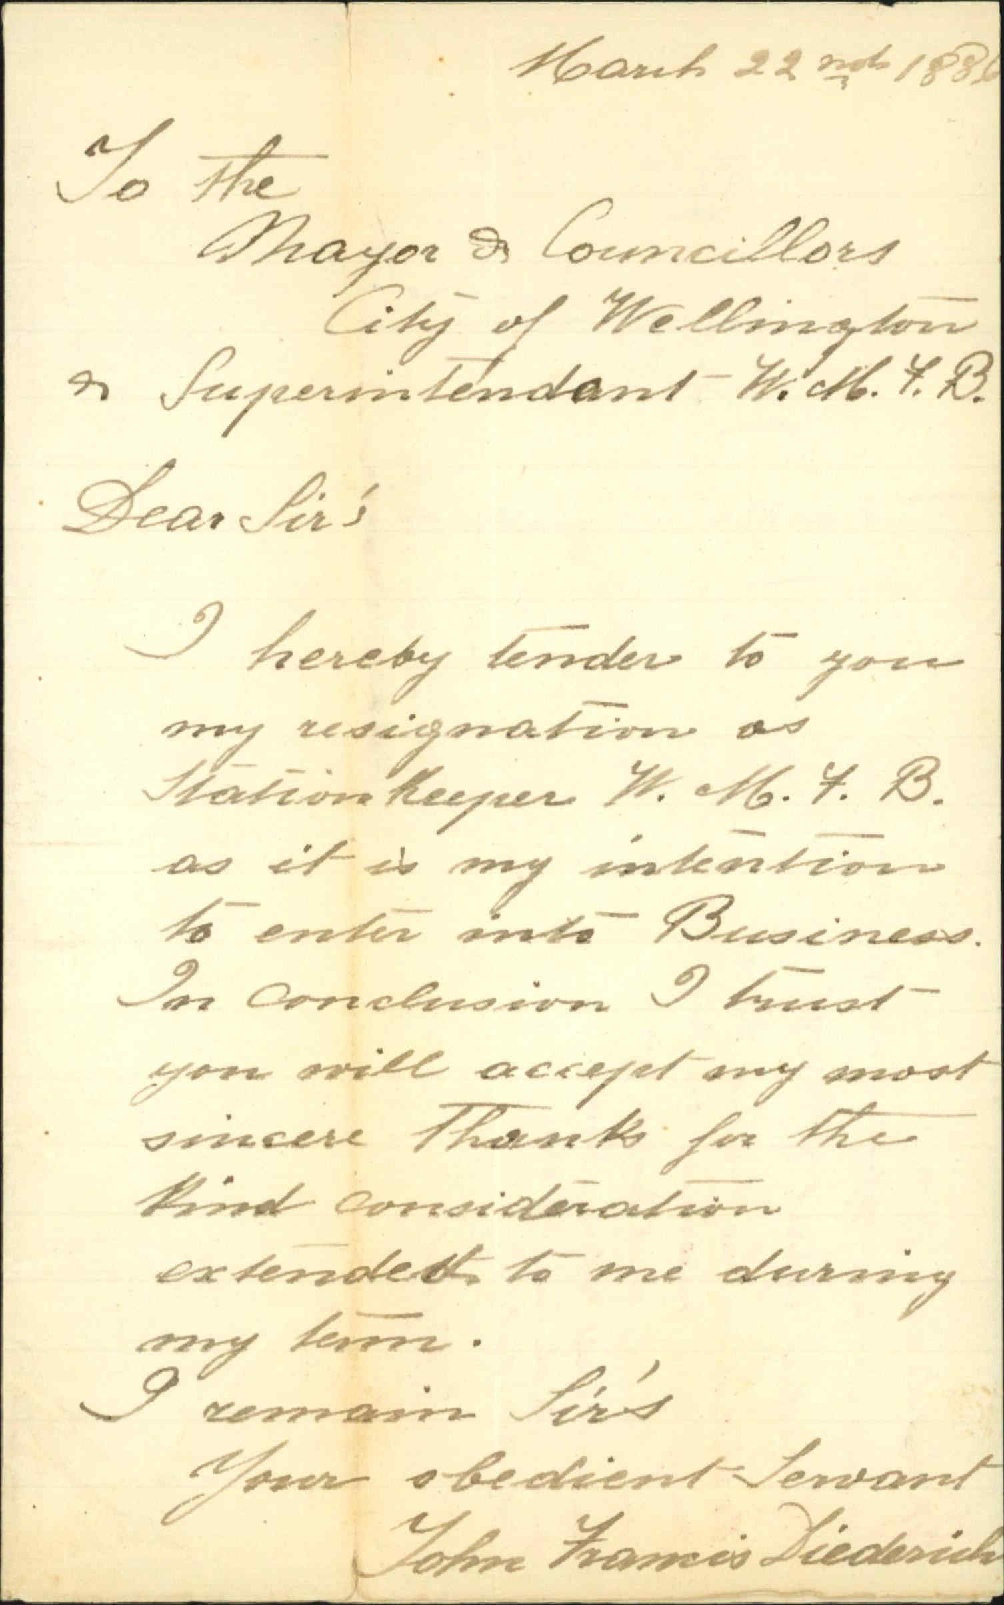 March 22nd 188
To the
Mayor & Councillors
City of Wellington
& Superintendant W. M. F. B.
Dear Sir's
I hereby tender to you
my resignation as
Station Keeper W. M. F. B.
as it is my intention
to enter into Business.
In conclusion I trust
you will accept my most
sincere thanks for the
kind consideration
extended to me during
my term.
I remain Sir's
Your obedient Servant
John Francis Diederich